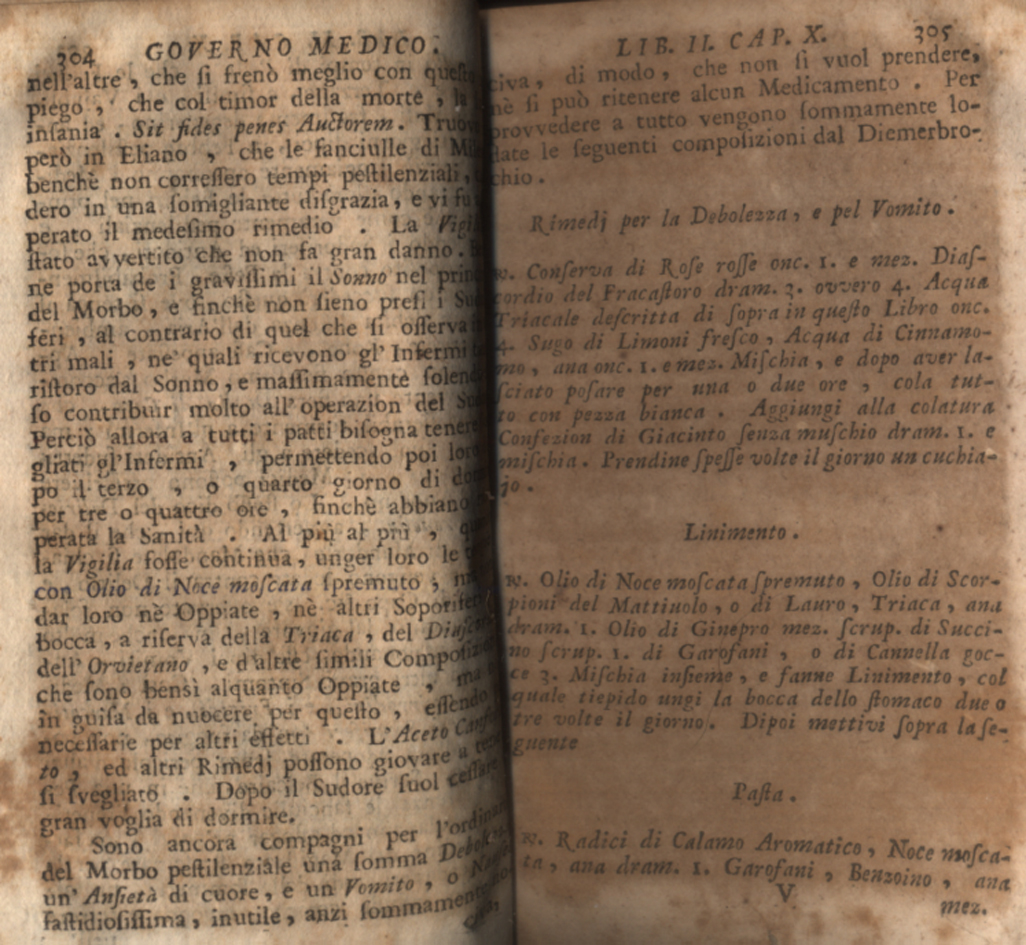 304 GOVERNO MEDICO.
nell'altre, che ſi frenò meglio con
piego, che col timor della morte,
inſania. Sit fides penes Auctorem.
però in Eliano, che le fanciulle di
benchè non correſſero tempi peſtilenziali,
dero in una ſomigliante diſgrazia, e vi
perato il medeſimo rimedio. La
ſtato avvertito che non fa gran danno.
ne porta de i graviſſimi il Sonno nel
del Morbo, e finchè non ſieno preſi i
feri, al contrario di quel che ſi oſſerva
tri mali, ne' quali ricevono gl'Infermi
riſtoro dal Sonno, e maſſimamente
ſo contribuir molto all'operazion del
Perciò allora a tutti i patti biſogna tenere
gliati gl'Infermi, permettendo poi loro
po il terzo, o quarto giorno di
per tre o quattro ore, finchè abbiano
perata la Sanità. Al più al più,
la Vigilia foſſe continua, unger loro le
con Olio di Noce moſcata ſpremuto;
dar loro nè Oppiate, nè altri
bocca, a riſerva della Triaca, del
dell'Orvietano, e d'altre ſimili
che ſono bensì alquanto Oppiate, ma
in guiſa da nuocere per queſto, eſſendo
neceſſarie per altri effetti. L'Aceto
to, ed altri Rimedj poſſono giovare a
ſi ſvegliato. Dopo il Sudore ſuol ceſſare
gran voglia di dormire.
Sono ancora compagni per
del Morbo peſtilenziale una ſomma
un' Anſietà di cuore, e un Vomito, o
faſtidioſiſſima, inutile, anzi ſommamente
LIB. II. CAP. X. 305
civa, di modo, che non ſi vuol prendere,
nè ſi può ritenere alcun Medicamento. Per
provvedere a tutto vengono ſommamente lo-
date le ſeguenti compoſizioni dal Diemerbro-
chio.
Rimedj per la Debolezza, e pel Vomito.
Conſerva di Roſe roſſe onc. 1. e mez. Diaſ-
cordio del Fracaſtoro dram. 3. ovvero 4. Acqua
Triacale deſcritta di ſopra in queſto Libro onc.
4. Sugo di Limoni freſco, Acqua di Cinnamo-
mo, ana onc. 1. e mez. Miſchia, e dopo aver la-
ſciato poſare per una o due ore, cola tut-
to con pezza bianca. Aggiungi alla colatura
Confezion di Giacinto ſenza muſchio dram. 1. e
miſchia. Prendine ſpeſſe volte il giorno un cuchia-
jo.
Linimento.
Olio di Noce moſcata ſpremuto, Olio di Scor-
pioni del Mattiuolo, o di Lauro, Triaca, ana
dram. 1. Olio di Ginepro mez. ſcrup. di Succi-
no ſcrup. 1. di Garofani, o di Cannella goc-
ce 3. Miſchia inſieme, e fanne Linimento, col
quale tiepido ungi la bocca dello ſtomaco due o
tre volte il giorno. Dipoi mettivi ſopra la ſe-
guente
Paſta.
Radici di Calamo Aromatico, Noce moſca-
ta, ana dram. 1. Garofani, Benzoino, ana
V mez.